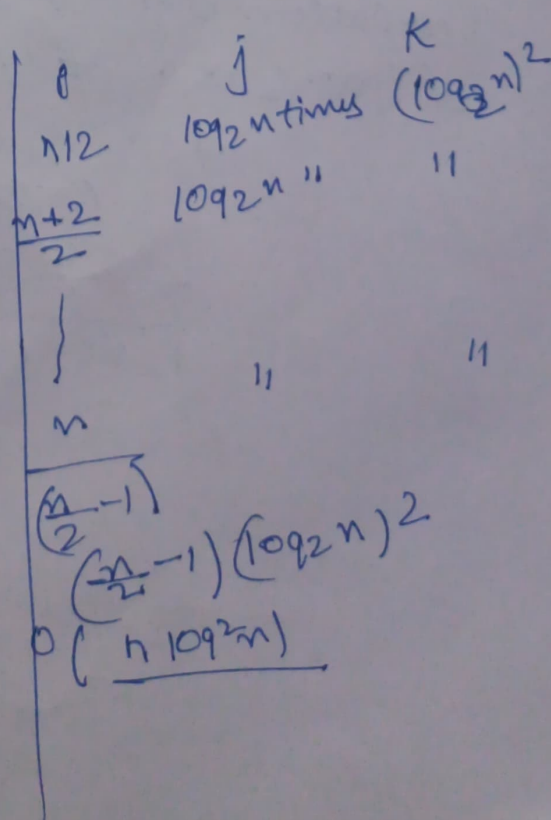 i j K
n/2 log2n times (log2n)^2
n+2/2 log2n " "
" "
n
(n/2 -1)
(n/2 -1) (log2 n)^2
O( n log^2n)